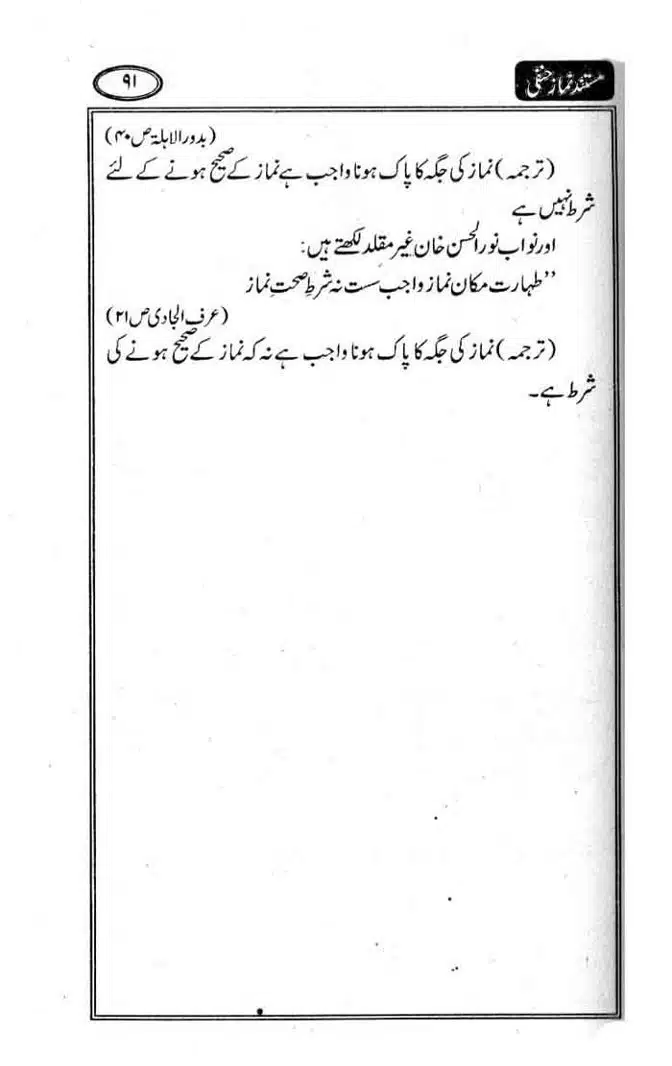 مستند نماز حنفی
۹۱
(بدور الاہلۃ ص۴۰)
(ترجمہ) نماز کی جگہ کا پاک ہونا واجب ہے نماز کے صحیح ہونے کے لئے
شرط نہیں ہے
اور نواب نور الحسن خان غیر مقلد لکھتے ہیں:
’’طہارت مکان نماز واجب ست نہ شرطِ صحتِ نماز
(عرف الجادی ص۲۱)
(ترجمہ) نماز کی جگہ کا پاک ہونا واجب ہے نہ کہ نماز کے صحیح ہونے کی
شرط ہے۔